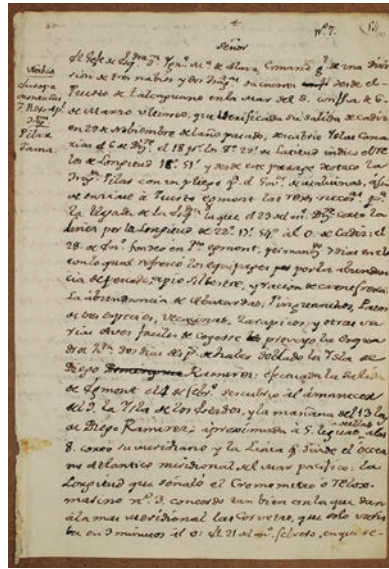 Nº 7.
Señor
El Gefe de Esq.ᵃ Dⁿ Ign.º M.ª de Alava, Comand.ᵗᵉ g.ˡ de una divi
sion de tres navios y dos frag.ᵗᵃˢ da cuenta desde el
Puerto de Talcaguano en la Mar del S. con fha de 6
de Marzo ultimo, que verificada su salida de Cadiz
en 29 de Noviembre del año pasado, descubrio Yslas Cana
rias el 6 de Dic.ᵉ, el 18 p.ʳ los 9º 29' de Latitud indico el Re
lox de Longitud 18º 51' y desde este parage destaco la
frag.ᵗᵃ Pilar con un pliego p.ª el Gov.ʳ de Maluinas, a fin
de enviarle a Puerto Egmont
la llegada de la Esq.ᵃ la que el 23 del m.º Dic.ᵉ corto la
linea por la Longitud de 22º 17' 54" al O. de Cadiz: el
28 de En.º fondeo en P.ᵗᵒ Egmont, permanecio 7 dias en el
con lo qual refresco los equipages por la abundan
cia de pescado, apio silbestre, y racion de carne fresca
La abundancia de Abutardas, Pinguinos, Patos
de dos especies, Becasinas, Zarapicos, y otras va
rias Aves faciles de cogerse proveyo la esqua
dra dos dias desp.ˢ de haber doblado la Ysla de
Diego Ramirez: efectuada la salida
de Egmont el 4 de Feb.º descubrio al amanecer
del 9. la Ysla de los Estados, y la mañana del 13 la
de Diego Ramirez; aproximada a 5 leguas, a las
8. corto su meridiano y la Linea q.ᵉ divide el Ocea
no Atlantico meridional del Mar pacifico: la
Longitud que señaló el Cronometro o Relox
marino nº 9. concordó tan bien con la que dan
a la mas meridional las Corvetas, que solo varia
ba en 3 minutos al O: el 21 del m.º Febrero, en que se
Europa
Montañes
Pilar
Fama.